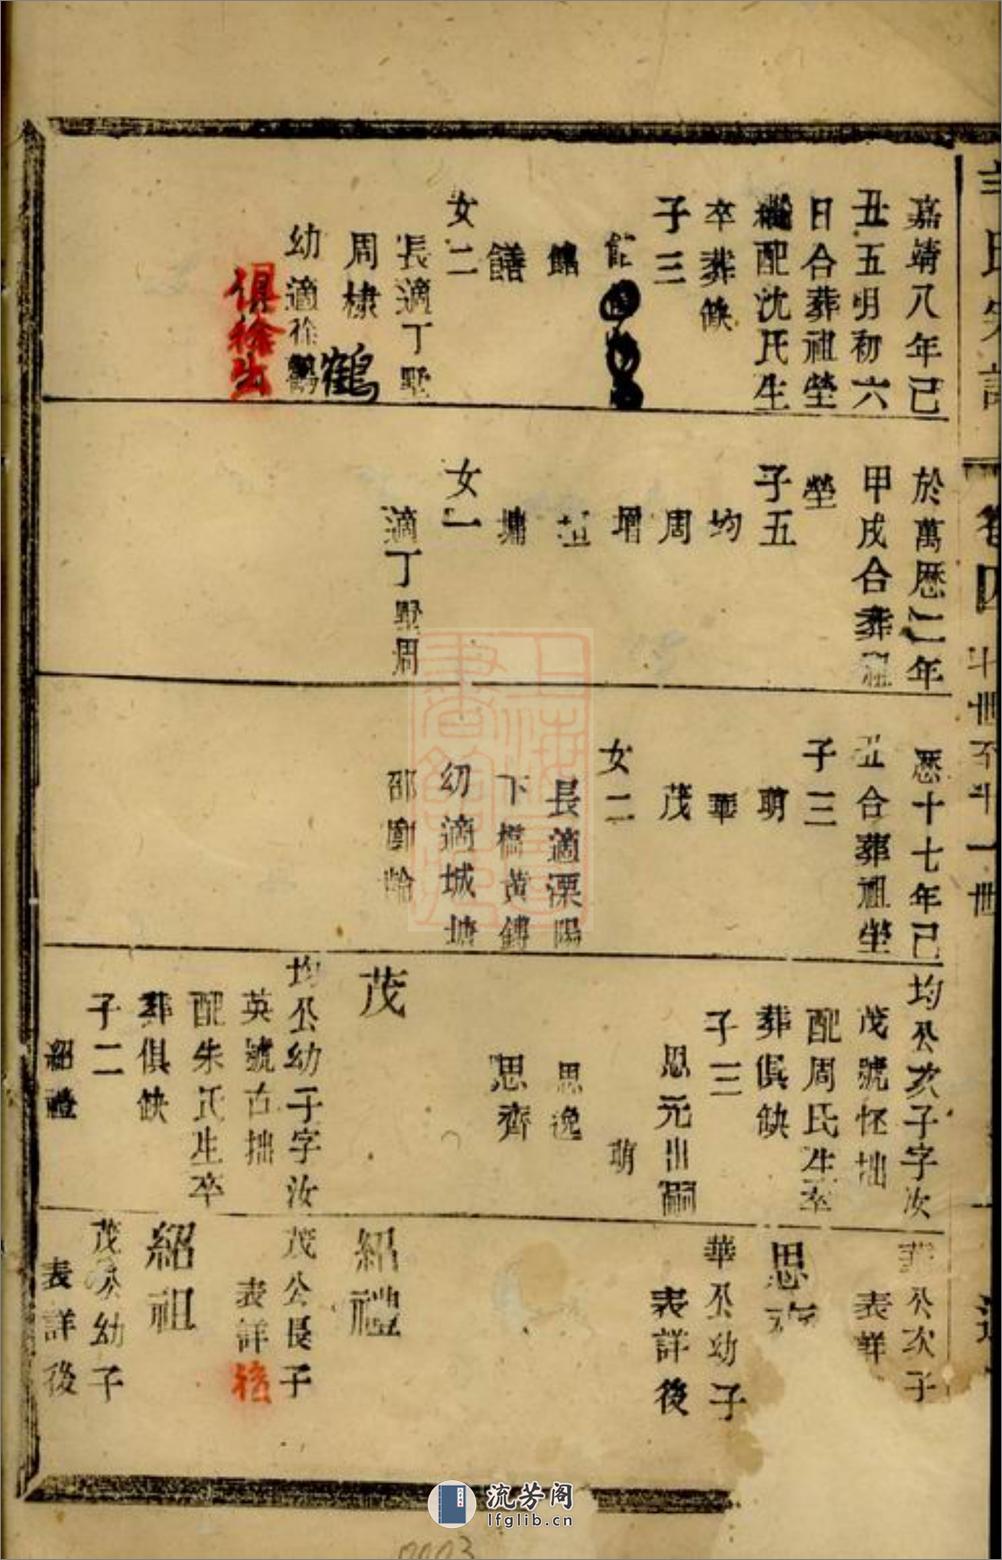 嘉靖八年己
丑五明初六
日合葬祖塋
繼配沈氏生
卒葬缺
子三
館
饍
女二
長適丁墅
周棣
幼適徐鶴
鶴
俱徐出
於萬歷二年
甲戌合葬祖
塋
子五
均
周
增
墉
女一
適丁墅周
歷十七年己
丑合葬祖塋
子三
萌
華
茂
女二
長適溧陽
下橋黃鏄
幼適城塘
邵
均公次子字汝
茂號怪拙
配周氏生卒
葬俱缺
子三
思元出嗣
萌
思逸
思齊
茂
均公幼子字汝
英號古拙
配朱氏生卒
葬俱缺
子二
紹禮
華公次子
表詳
思齊
華公幼子
表詳後
紹禮
茂公長子
表詳後
紹祖
茂公幼子
表詳後
卷四
十世至十一世
流芳阁
lfglib.cn